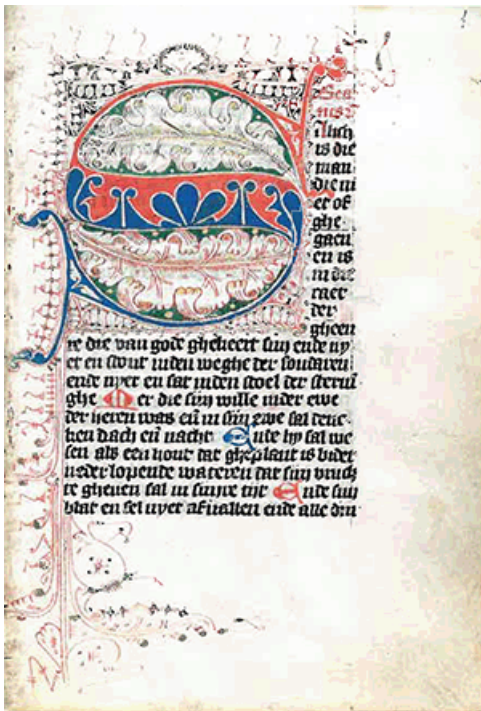 S
alich
is die
man
die ni
et of
ghe
gaen
en is
in die
raet
der
gheen
re die van gode ghekeert sijn ende ny
et en stont inden weghe der sondaren
ende nyet en sat inden stoel der
ghe Mer die sijn wille inder ewe
der heren was eñ in sijn ewe sal denc
ken dach eñ nacht Ende hy sal we
sen als een hout dat gheplant is bider
nederlopende wateren dat sijn vruch
te gheuen sal in sijnre tijt Ende sijn
blat en sel nyet afuallen ende alle din